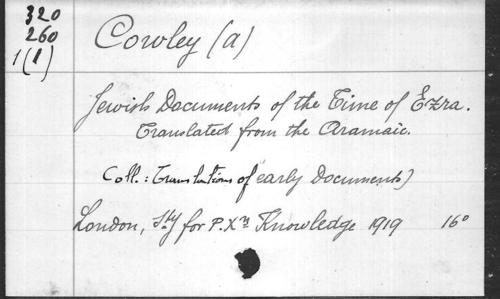 320
260
1(1)
Cowley (a)
Jewish Documents of the Time of Ezra.
Translated from the Aramaic.
Coll.: Translations of early Documents)
London, Sty for P. Xn Knowledge 1919 16°